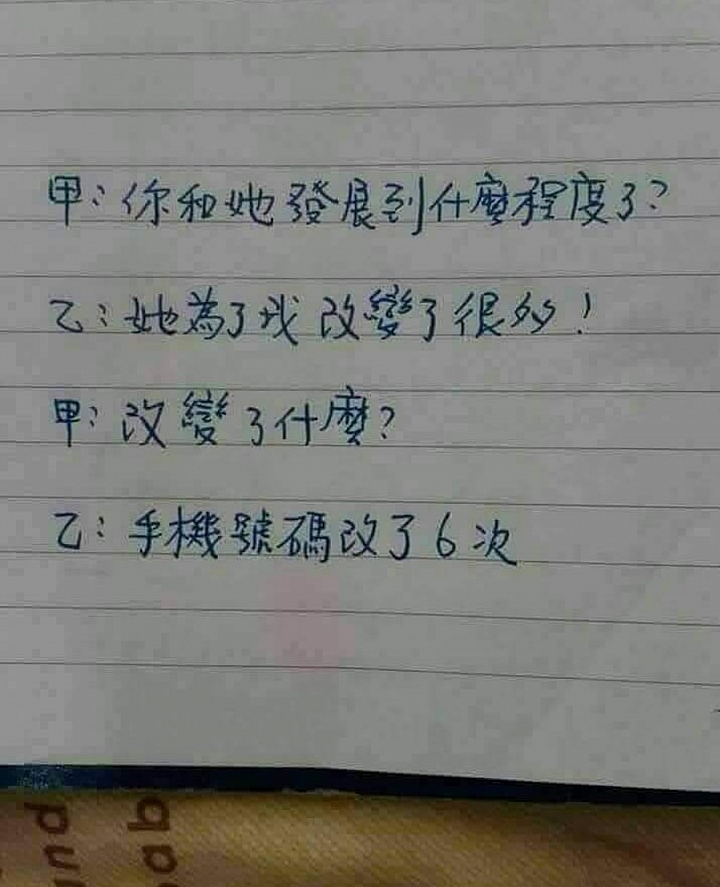 甲：你和她發展到什麼程度了？
乙：她為了我改變了很多！
甲：改變了什麼？
乙：手機號碼改了6次
und
ab